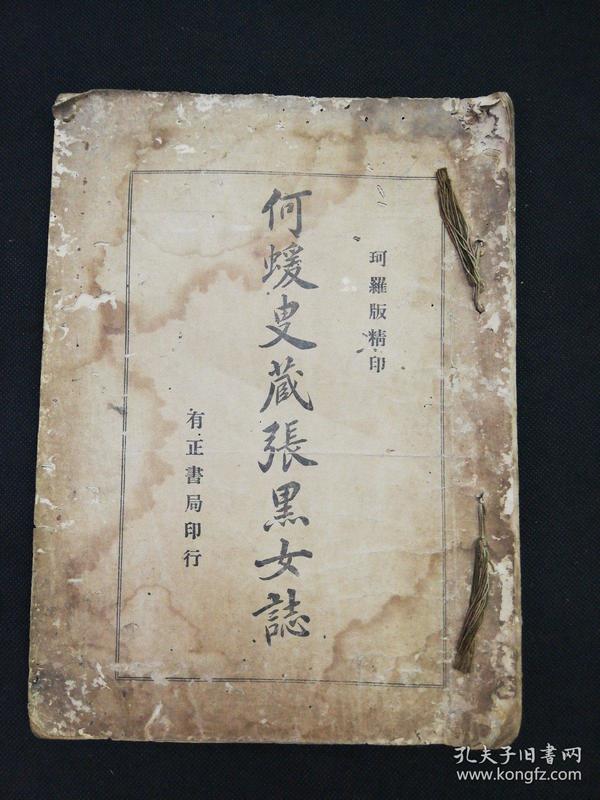 珂羅版精印
何蝯叟藏張黑女誌
有正書局印行
孔夫子旧书网
www.kongfz.com